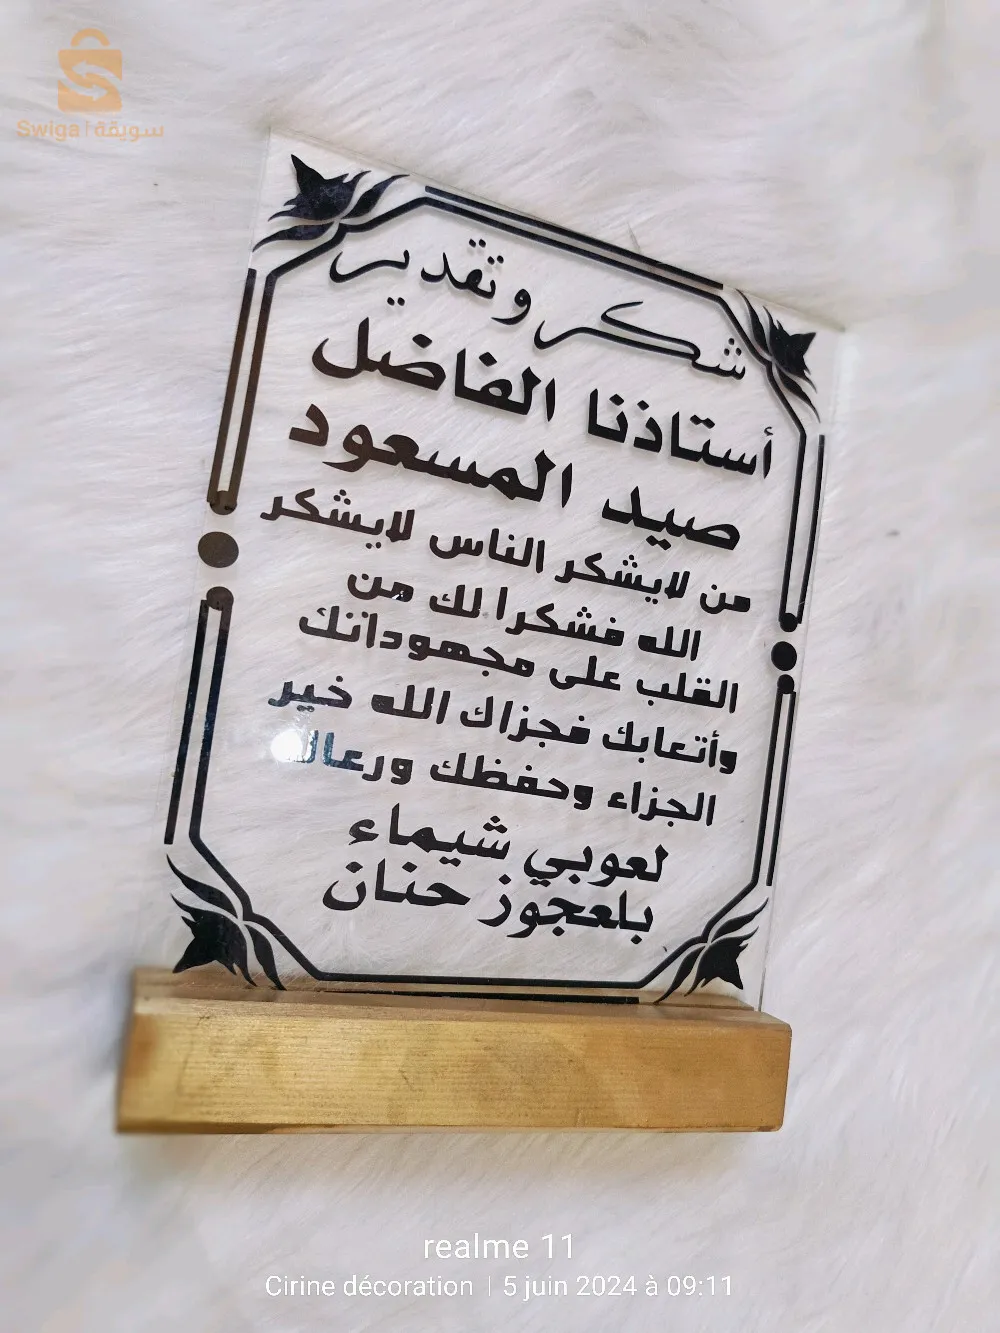 Swiga | سويقة
شكر وتقدير
أستاذنا الفاضل
صيد المسعود
من لايشكر الناس لايشكر
الله فشكرا لك من
القلب على مجهوداتك
وأتعابك فجزاك الله خير
الجزاء وحفظك ورعاك
لعوبي شيماء
بلعجوز حنان
realme 11
Cirine décoration | 5 juin 2024 à 09:11